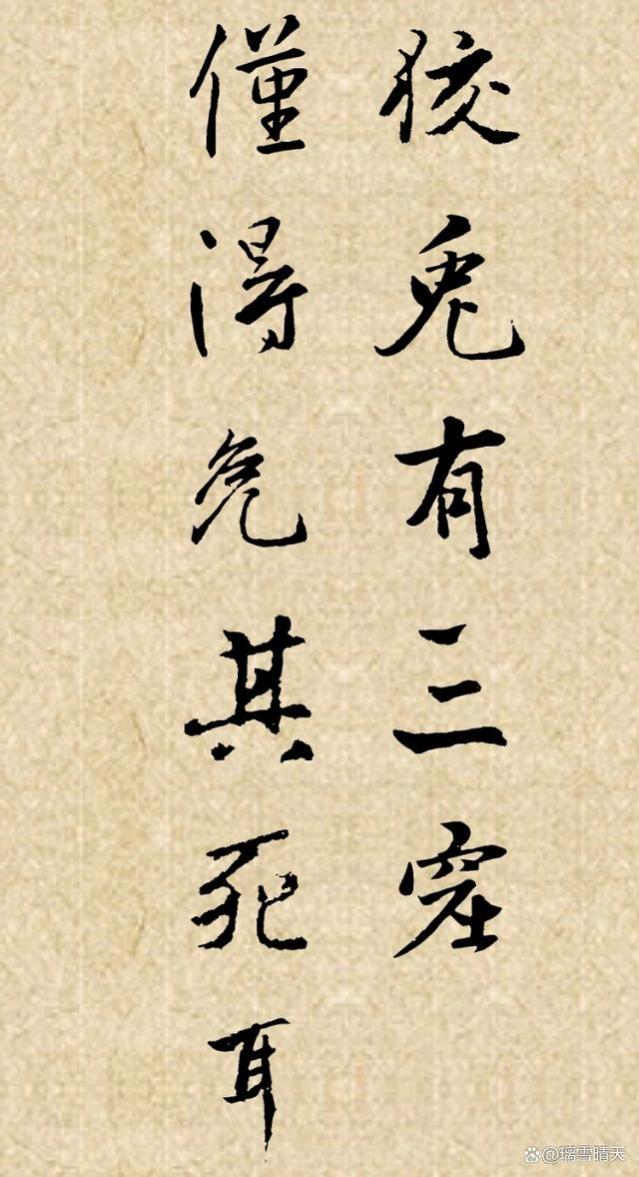 狡兔有三窟
僅得免其死耳
@璃雪晴天